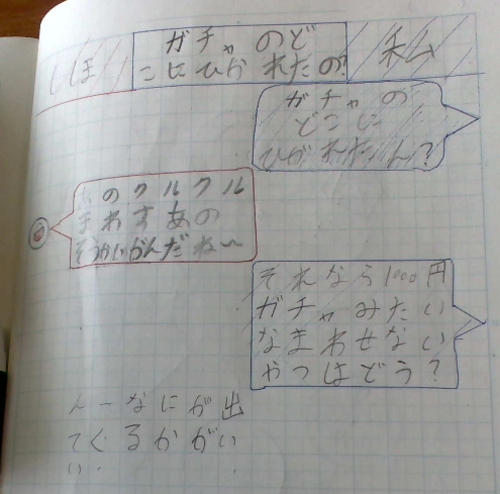 しほ
ガチャのど
こにひかれたの?
私
ガチャの
どこに
ひかれたん?
のクルクル
まわすあの
そうかいかんだね〜
それなら1000円
ガチャみたい
なまわせない
やつはどう?
んーなにが出
てくるかがい
い.